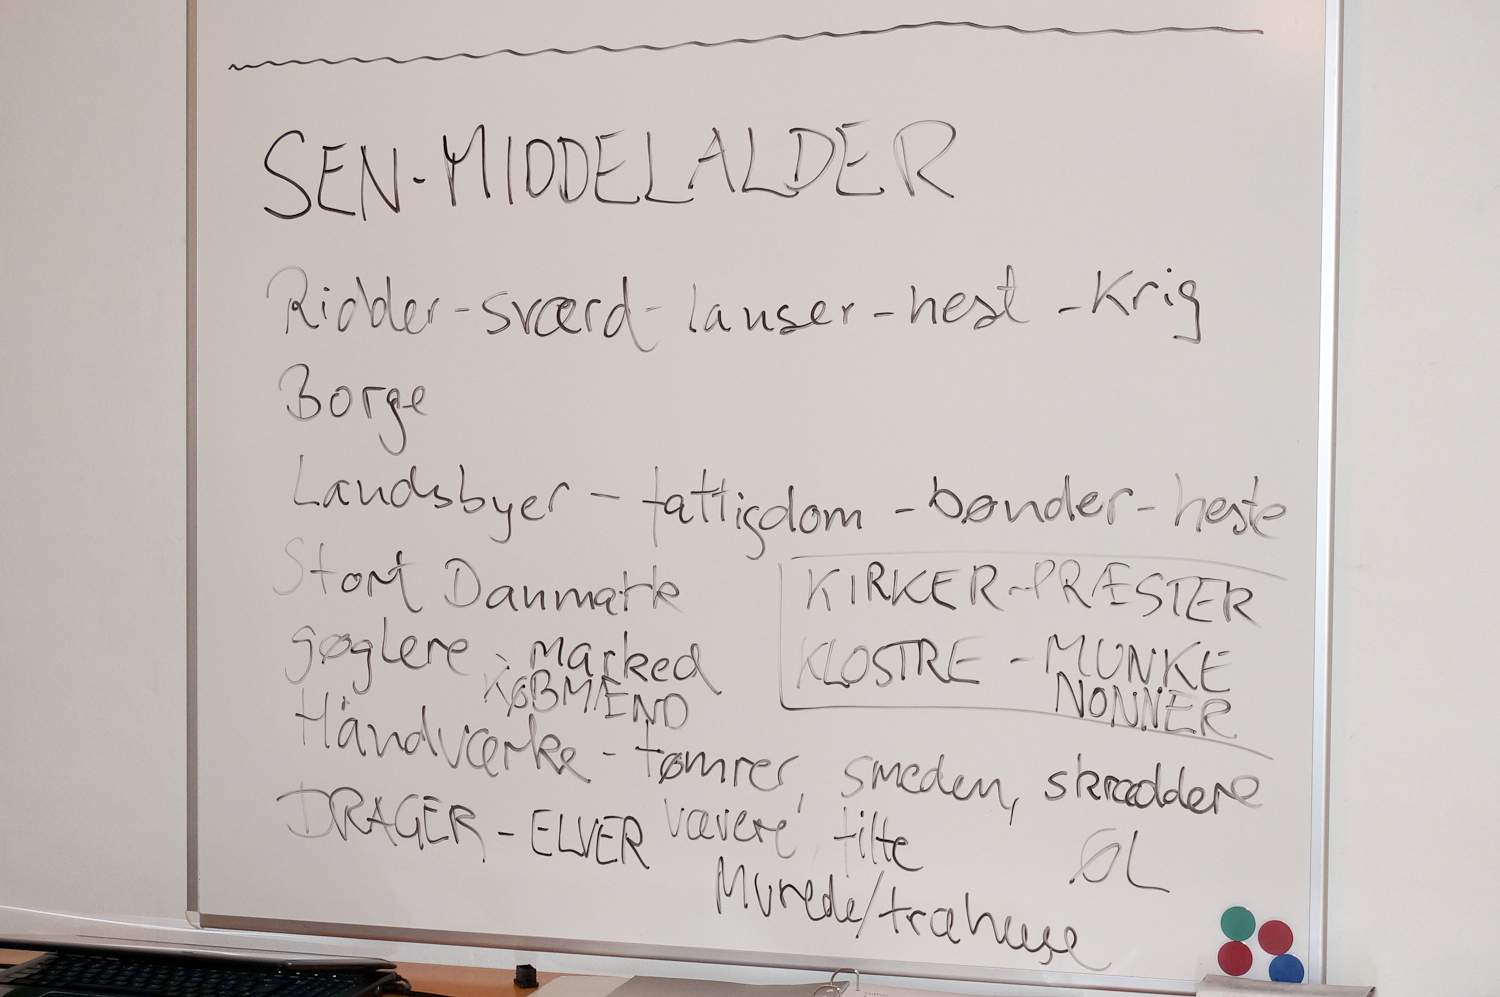 SEN-MIDDELALDER
Ridder - sværd - lanser - hest - Krig
Borge
Landsbyer - fattigdom - bønder - heste
Stort Danmark
KIRKER - PRÆSTER
gøglere - marked
KØBMÆND
KLOSTRE - MUNKE
NONNER
Håndværke - tømrer, smeden, skræddere
DRAGER - ELVER
vævere, filte
ØL
Murede/træhuse